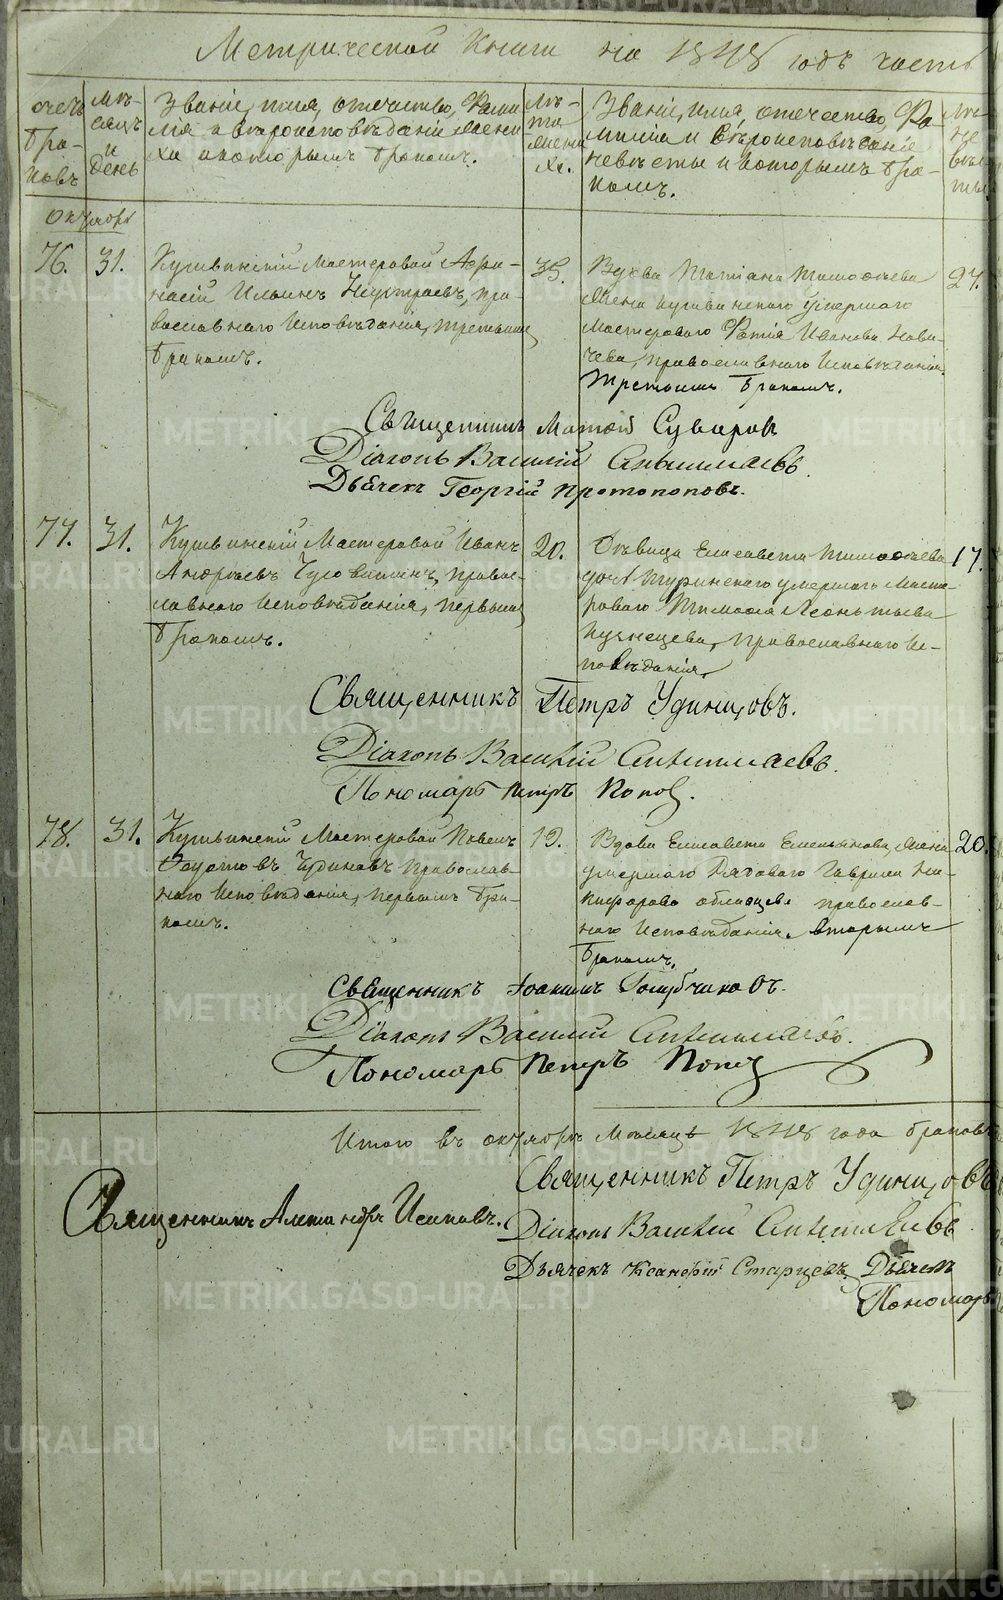 Метрической книги на 1848 годъ часть
счетъ браковъ
Мѣсяцъ и день
Званіе, имя, отечество, фамилія и вѣроисповѣданіе жениха и которымъ бракомъ.
Лѣта жениха.
Званіе, имя, отечество, фамилія и вѣроисповѣданіе невѣсты и которымъ бракомъ.
Октябрь
76.
31.
Кушвинскій Мастеровой Афа-
насій Ильинъ, пра-
вославнаго Исповѣданія, третьимъ
бракомъ.
35.
Вдова Татіана Тимофѣева
Жена кушвинскаго умершаго
Мастероваго Фотія Иванова Нови-
чева, православнаго Исповѣданія,
третьимъ бракомъ.
27.
Священникъ Матѳей Суворовъ
Діаконъ Василій
Дьячекъ Георгій Протопоповъ.
77.
31.
Кушвинскій Мастеровой Иванъ
Андреевъ, правос-
лавнаго Исповѣданія, первымъ
бракомъ.
20.
Дѣвица Елисавета Тимофѣева
дочь Туринскаго умершаго Масте-
роваго Тимофея Леонтьева
Кузнецова, православнаго Ис-
повѣданія,
17.
Священникъ Петръ Удинцовъ.
Діаконъ Василій
Пономарь Петръ Попов.
78.
31.
Кушвинскій Мастеровой Павелъ
Чудиновъ православ-
наго Исповѣданія, первымъ бра-
комъ.
19.
Вдова Елисавета Емельянова, жена
умершаго Рядоваго Гаврила Ни-
кифорова православ-
наго Исповѣданія, вторымъ
бракомъ.
20.
Священникъ Іоаннъ Голубчиковъ.
Діаконъ Василій
Пономарь Петръ Попов
Итого въ октябрѣ мѣсяцѣ 1848 года браковъ
Священникъ Петръ Удинцовъ
Священникъ Александръ Исиповъ.
Діаконъ Василій
Дьячекъ Ксанфій Старцевъ. Дьячекъ
Пономарь
METRIKI.GASO-URAL.RU